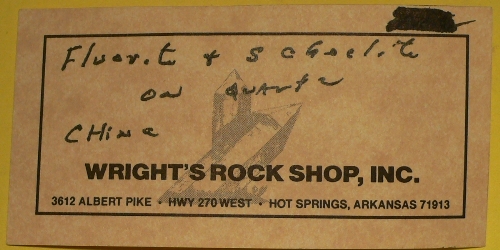 Fluorite & Scheelite
on Quartz
China
WRIGHT'S ROCK SHOP, INC.
3612 ALBERT PIKE • HWY 270 WEST • HOT SPRINGS, ARKANSAS 71913